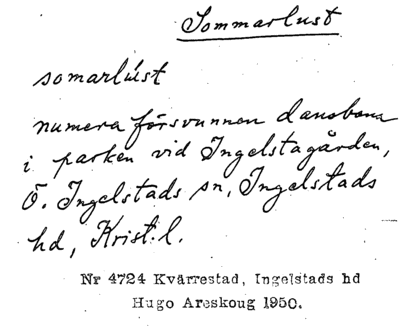 Sommarlust
somarlúst
numera försvunnen dansbana
i parken vid Ingelstagården,
Ö. Ingelstads sn, Ingelstads
hd, Krist. l.
Nr 4724 Kvärrestad, Ingelstads hd
Hugo Areskoug 1950.